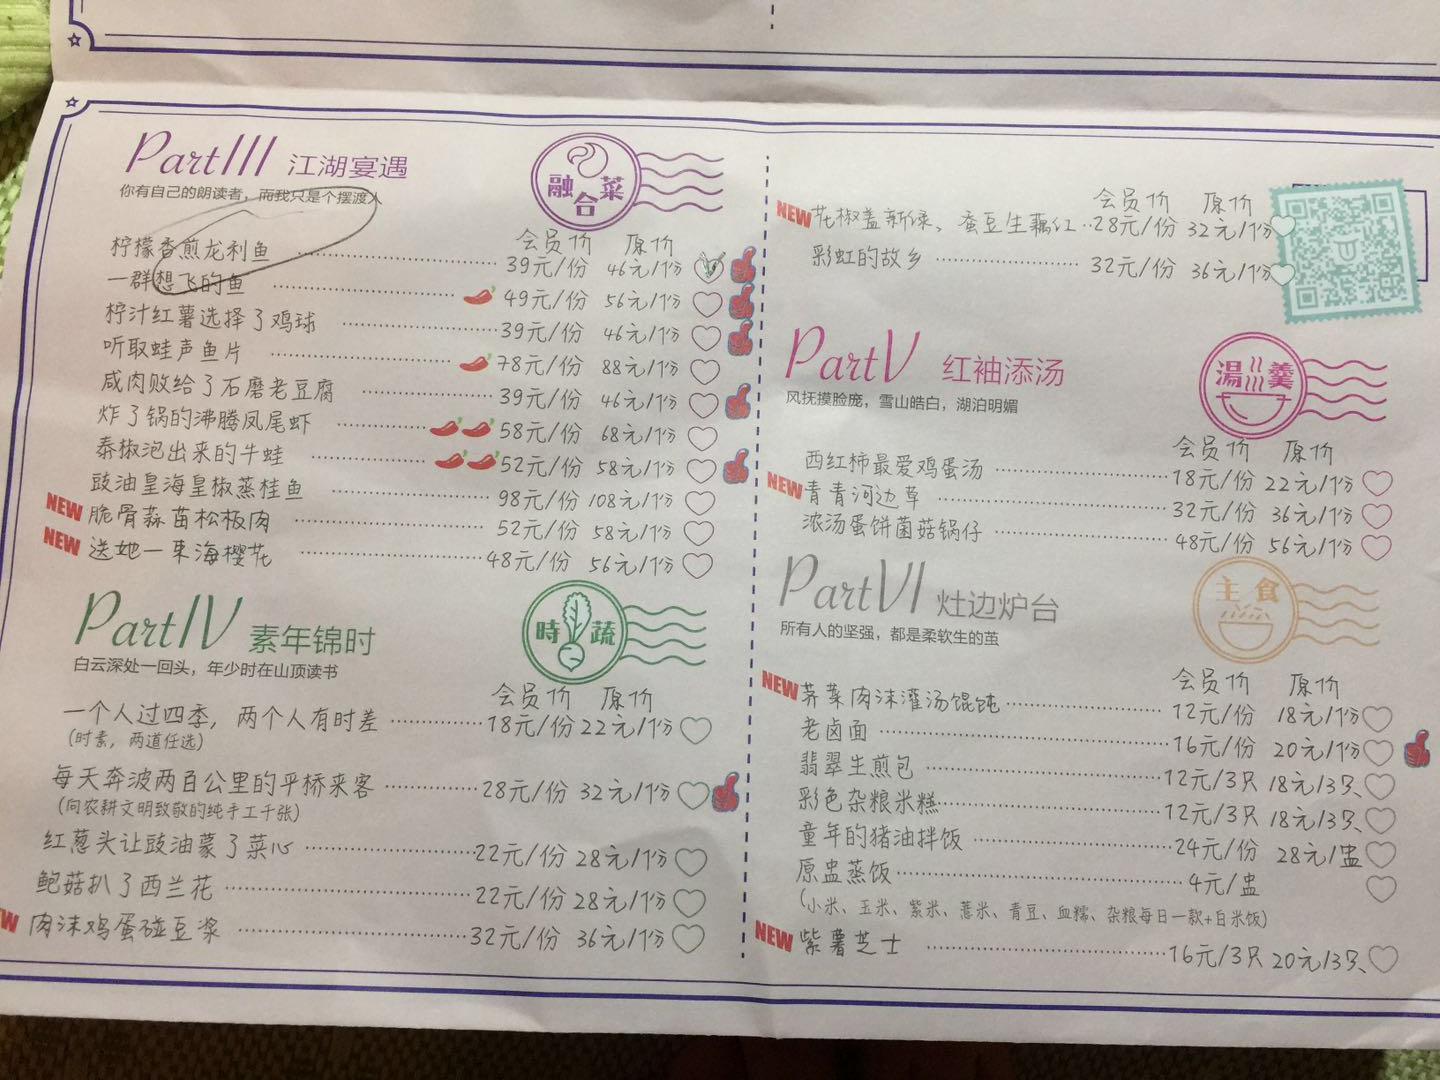 PartIII 江湖宴遇
你有自己的朗读者，而我只是个摆渡人
融合菜
会员价 原价
柠檬香煎龙利鱼 39元/份 46元/份
一群想飞的鱼 49元/份 56元/份
柠汁红薯选择了鸡球 39元/份 46元/份
听取蛙声鱼片 78元/份 88元/份
咸肉败给了石磨老豆腐 39元/份 46元/份
炸了锅的沸腾凤尾虾 58元/份 68元/份
泰椒泡出来的牛蛙 52元/份 58元/份
豉油皇海皇椒蒸桂鱼 98元/份 108元/份
NEW 脆骨蒜苗松板肉 52元/份 58元/份
NEW 送她一束海樱花 48元/份 56元/份
PartIV 素年锦时
白云深处一回头，年少时在山顶读书
時蔬
会员价 原价
一个人过四季，两个人有时差 18元/份 22元/份
(时素，两道任选)
每天奔波两百公里的平桥来客 28元/份 32元/份
(向农耕文明致敬的纯手工千张)
红葱头让豉油蒙了菜心 22元/份 28元/份
鲍菇扒了西兰花 22元/份 28元/份
肉沫鸡蛋碰豆浆 32元/份 36元/份
会员价 原价
NEW 花椒盖新绿、蚕豆生藕红 28元/份 32元/份
彩虹的故乡 32元/份 36元/份
PartV 红袖添汤
风抚摸脸庞，雪山皓白，湖泊明媚
湯羹
会员价 原价
西红柿最爱鸡蛋汤 18元/份 22元/份
NEW 青青河边草 32元/份 36元/份
浓汤蛋饼菌菇锅仔 48元/份 56元/份
PartVI 灶边炉台
所有人的坚强，都是柔软生的茧
主食
会员价 原价
NEW 荠菜肉沫灌汤馄饨 12元/份 18元/份
老卤面 16元/份 20元/份
翡翠生煎包 12元/3只 18元/3只
彩色杂粮米糕 12元/3只 18元/3只
童年的猪油拌饭 24元/份 28元/盅
原盅蒸饭 4元/盅
(小米、玉米、紫米、薏米、青豆、血糯、杂粮每日一款+白米饭)
NEW 紫薯芝士 16元/3只 20元/3只